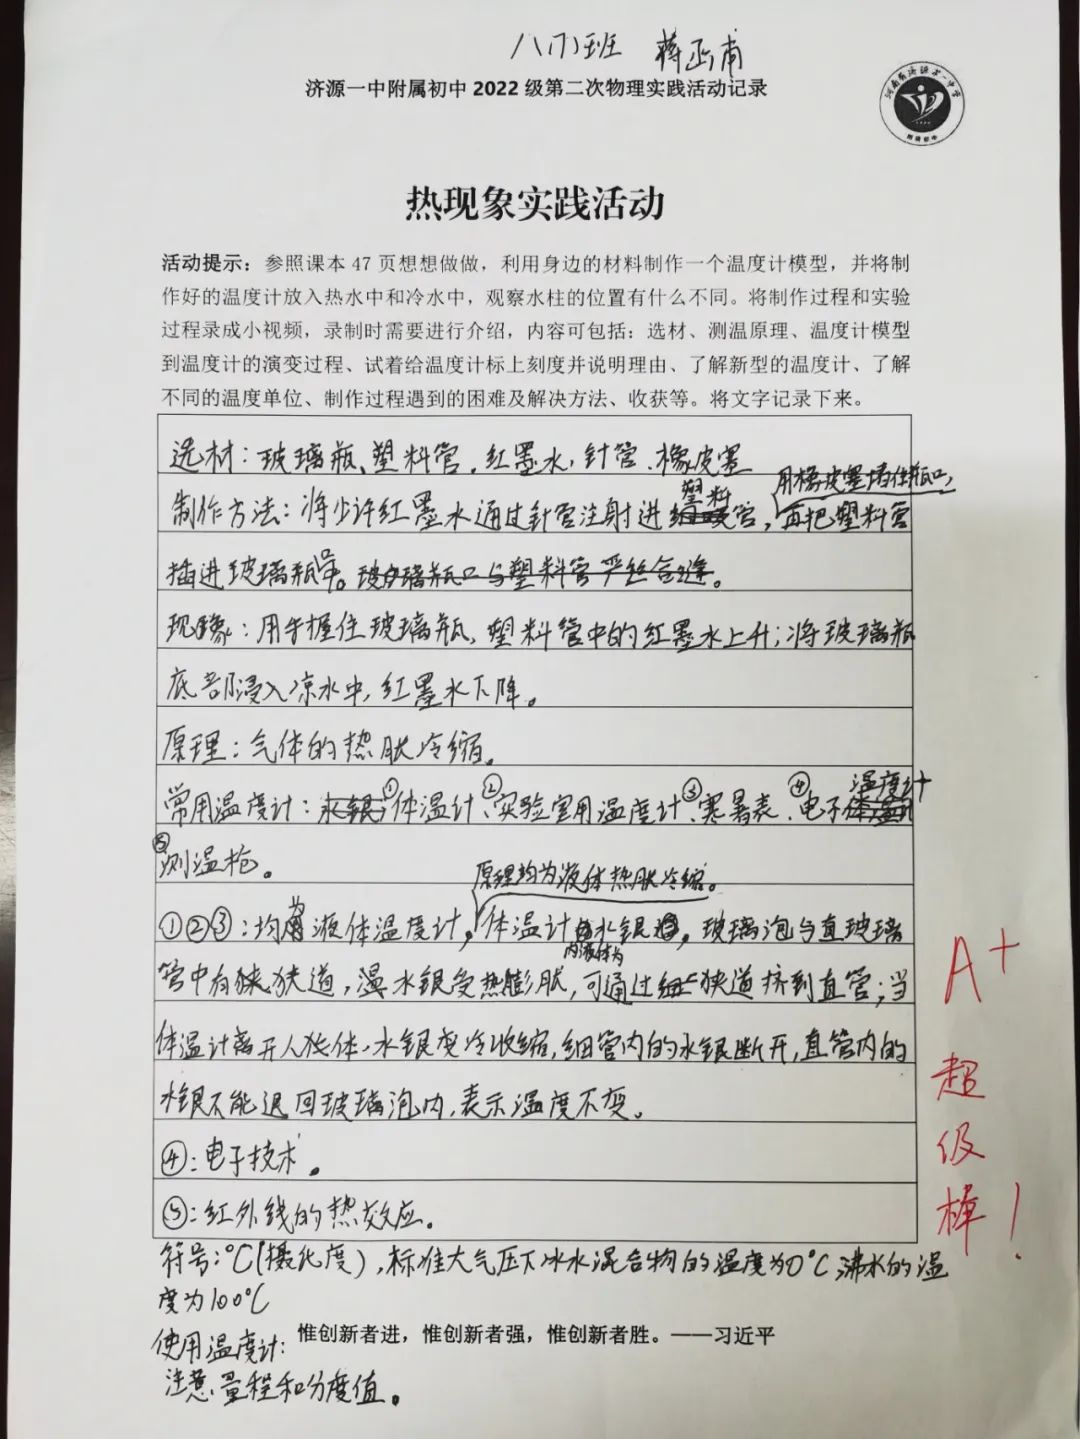 八(7)班 蒋函甫
济源一中附属初中 2022 级第二次物理实践活动记录
热现象实践活动
活动提示：参照课本 47 页想想做做，利用身边的材料制作一个温度计模型，并将制
作好的温度计放入热水中和冷水中，观察水柱的位置有什么不同。将制作过程和实验
过程录成小视频，录制时需要进行介绍，内容可包括：选材、测温原理、温度计模型
到温度计的演变过程、试着给温度计标上刻度并说明理由、了解新型的温度计、了解
不同的温度单位、制作过程遇到的困难及解决方法、收获等。将文字记录下来。
选材：玻璃瓶、塑料管、红墨水、针管、橡皮塞
用橡皮塞堵住瓶口，
制作方法：将少许红墨水通过针管注射进塑料管，再把塑料管
插进玻璃瓶中。玻璃瓶口与塑料管严丝合缝。
现象：用手握住玻璃瓶，塑料管中的红墨水上升；将玻璃瓶
底部浸入凉水中，红墨水下降。
原理：气体的热胀冷缩。
常用温度计：水银①体温计、②实验室用温度计、③寒暑表、④电子温度计
⑤测温枪。
原理均为液体热胀冷缩。
①②③：均为液体温度计，体温计内液体为水银，玻璃泡与直玻璃
管中有狭道，水银受热膨胀，可通过狭道挤到直管；当
体温计离开人体，水银变冷收缩，细管内的水银断开，直管内的
水银不能退回玻璃泡内，表示温度不变。
④：电子技术。
⑤：红外线的热效应。
符号：℃(摄氏度)，标准大气压下冰水混合物的温度为0℃，沸水的温
度为100℃
惟创新者进，惟创新者强，惟创新者胜。——习近平
使用温度计：
注意量程和分度值。
A+
超
级
棒！